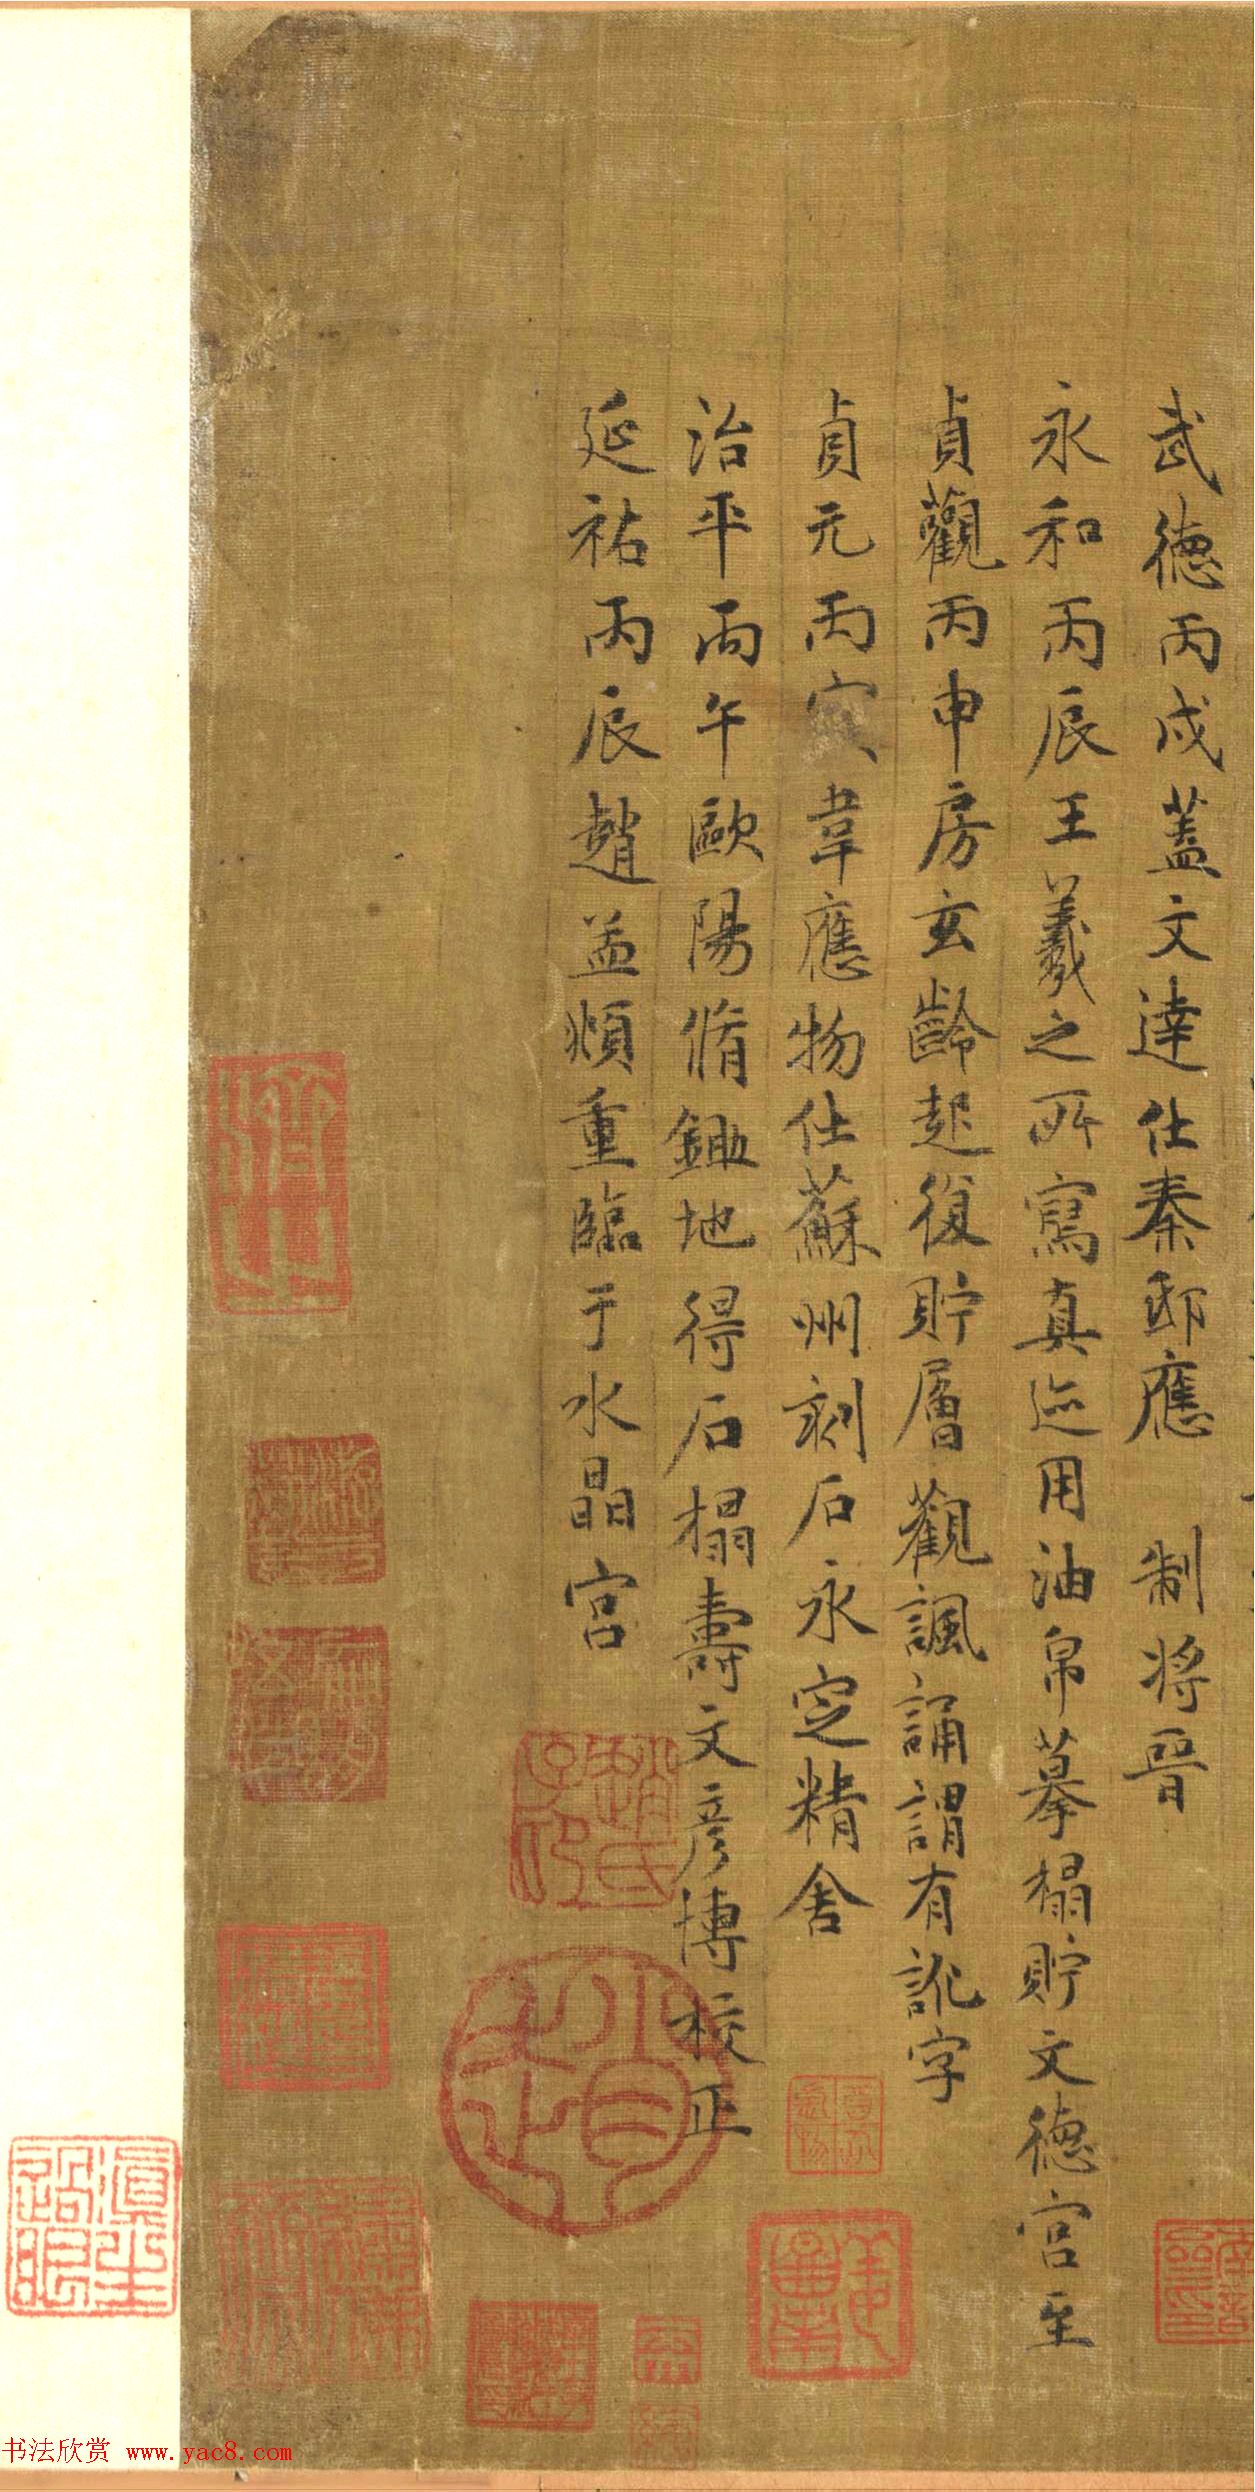 武德丙戌蓋文達仕秦邸應 制將晉
永和丙辰王羲之所寫真迹用油帛摹榻貯文德宮至
貞觀丙申房玄齡起復貯層觀諷誦謂有訛字
貞元丙寅韋應物仕蘇州刻石永定精舍
治平丙午歐陽脩鋤地得石榻壽文彥博校正
延祐丙辰趙孟頫重臨于水晶宮
趙氏子印
趙
書法欣賞 www.yac8.com